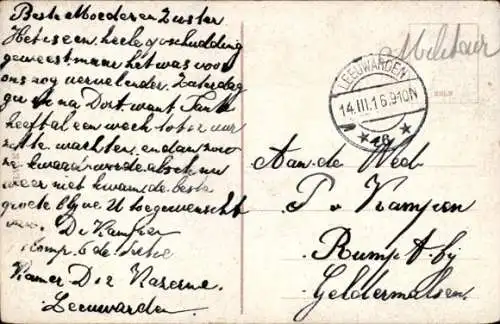 Beste Moeder en Zuster
Het is een heele goschudding
geweest, maar het was voor
ons nog vervelender. Zaterdag
ga ik na Dort want Tante
heeft al een week 
 te wachten, en dan zou
ze kwaad worde als ik nu
weer niet kwam de beste
groete blyve U toegewenscht
van D. v Kampen
Komp 6 de 
Kamer D 12 Kazerne
Leeuwarden
Militair
LEEUWARDEN
14.III.16.9-10N
Aan de Wed
P v Kampen
Rumpt by
Geldermalsen